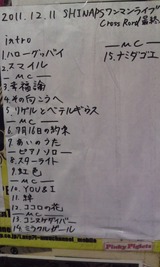 2011.12.11 SHINAPSワンマンライブ
Cross Road最終
intro
1.ハローグッバイ
2.スマイル
ーMCー
3.幸福論
4.その向こうへ
5.リゲルとベテルギウス
ーMCー
6.7月16日の約束
7.あいのうた
ーピアノソロー
8.スターライト
9.虹色
10.YOU&I
11.絆
12.ココロの花
ーMCー
13.コンヌケダイバー
14.ミラクルガール
ーMCー
15.ナミダゴエ
Pinky Piglets